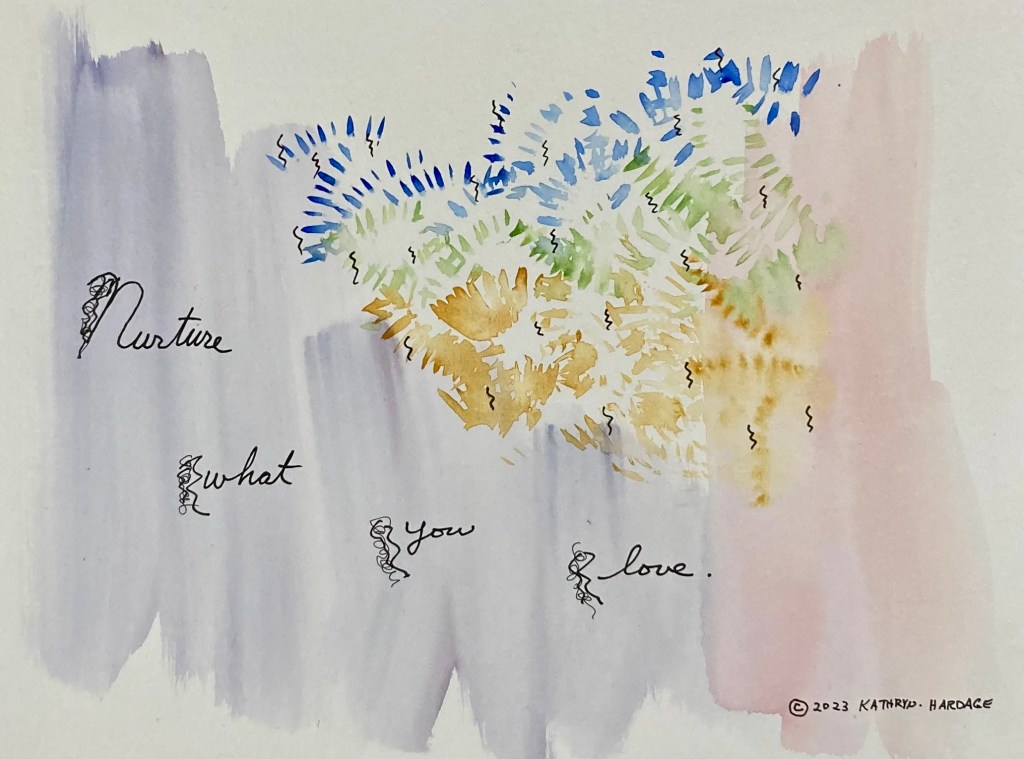 Nurture
what
you
love.
© 2023 KATHRYN. HARDAGE